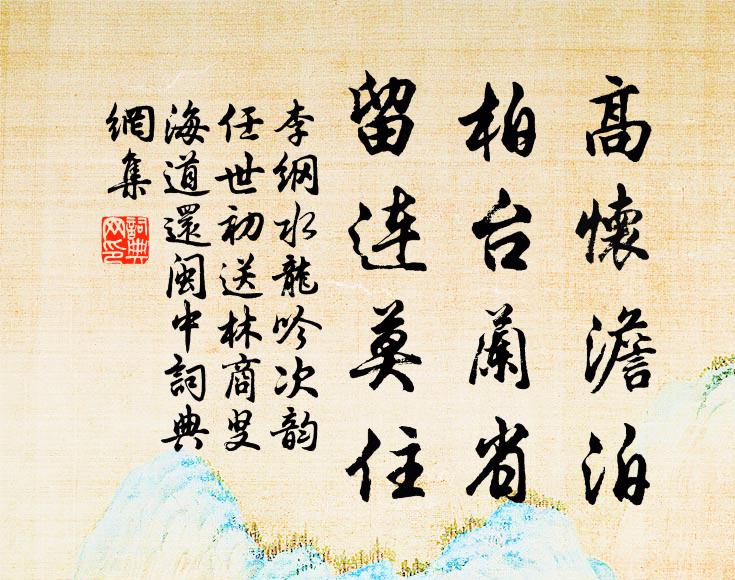 高懷澹泊
柏台蘭省
留連莫住
李綱水龍吟次韵
任世初送林商叟
海道還閩中詞典
網集
詞典
网印